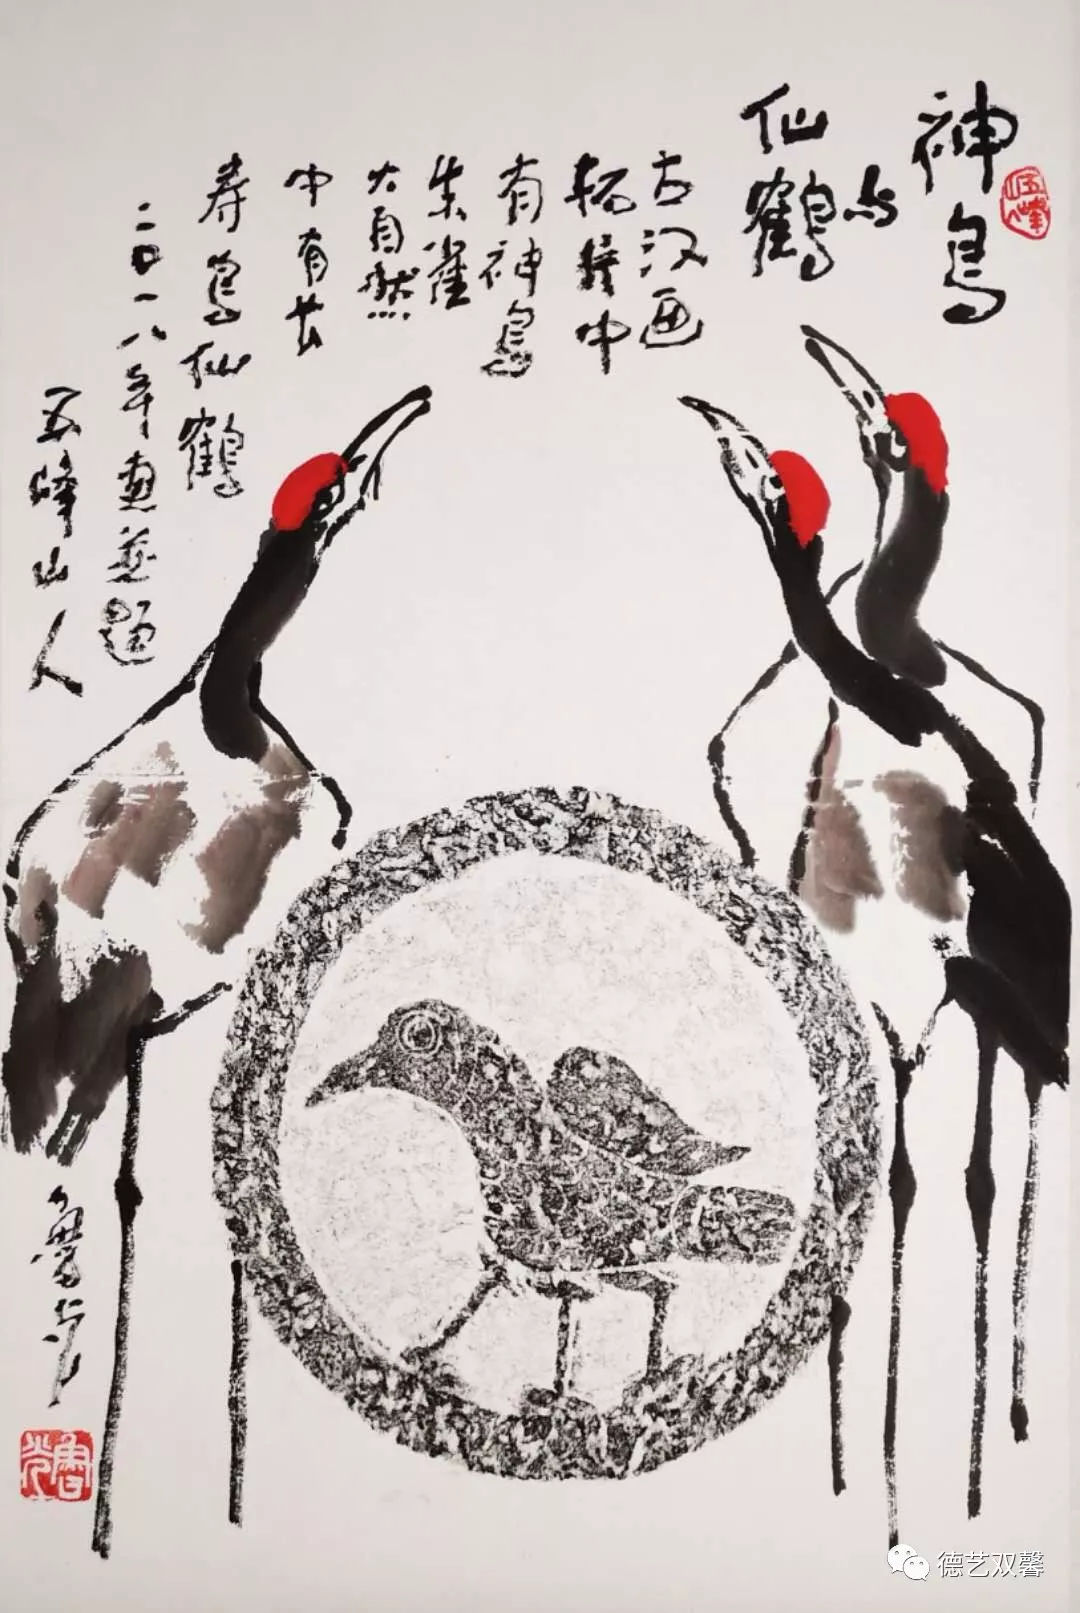 神鸟
与
仙鹤
古汉画
拓中
有神鸟
朱雀
大自然
中有长
寿鸟仙鹤
二〇一八年画並题
五峰山人
鲁光
五峰
鲁光
德艺双馨